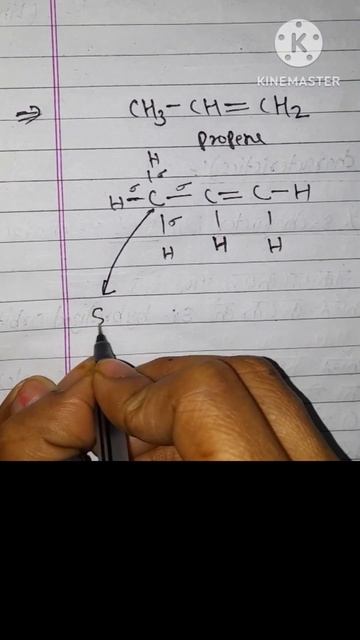 K
KINEMASTER
⇒ CH₃-CH=CH₂
propene
H
|σ
H-σC-σC=C-H
|σ | |
H H H
S